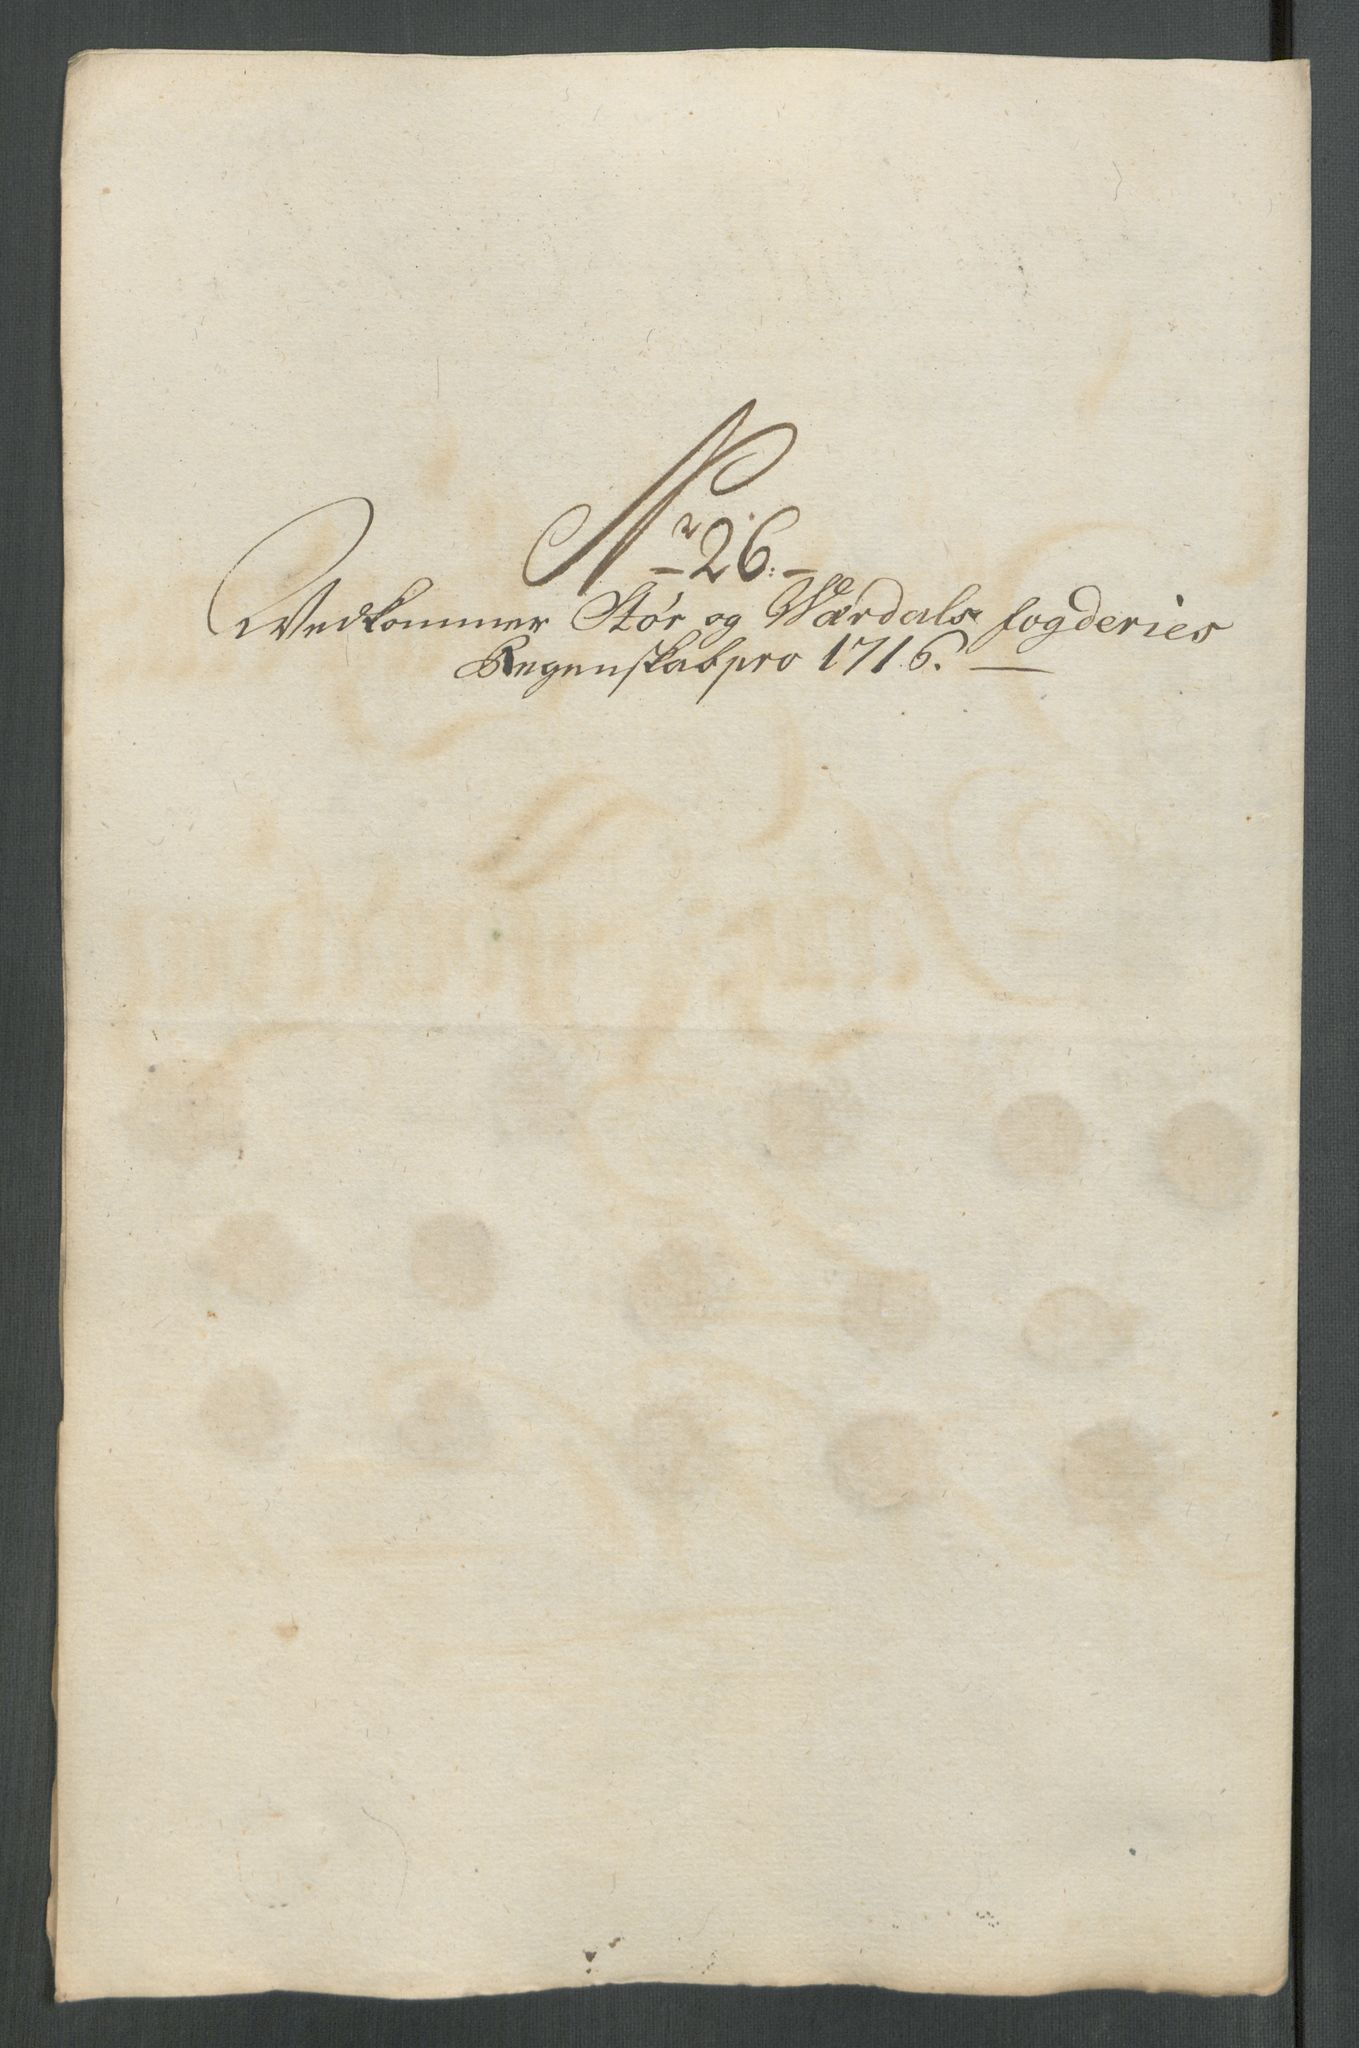 Nr 26.
Vedkommer Stör og Værdals fogderies
Regenskab pro 1716.